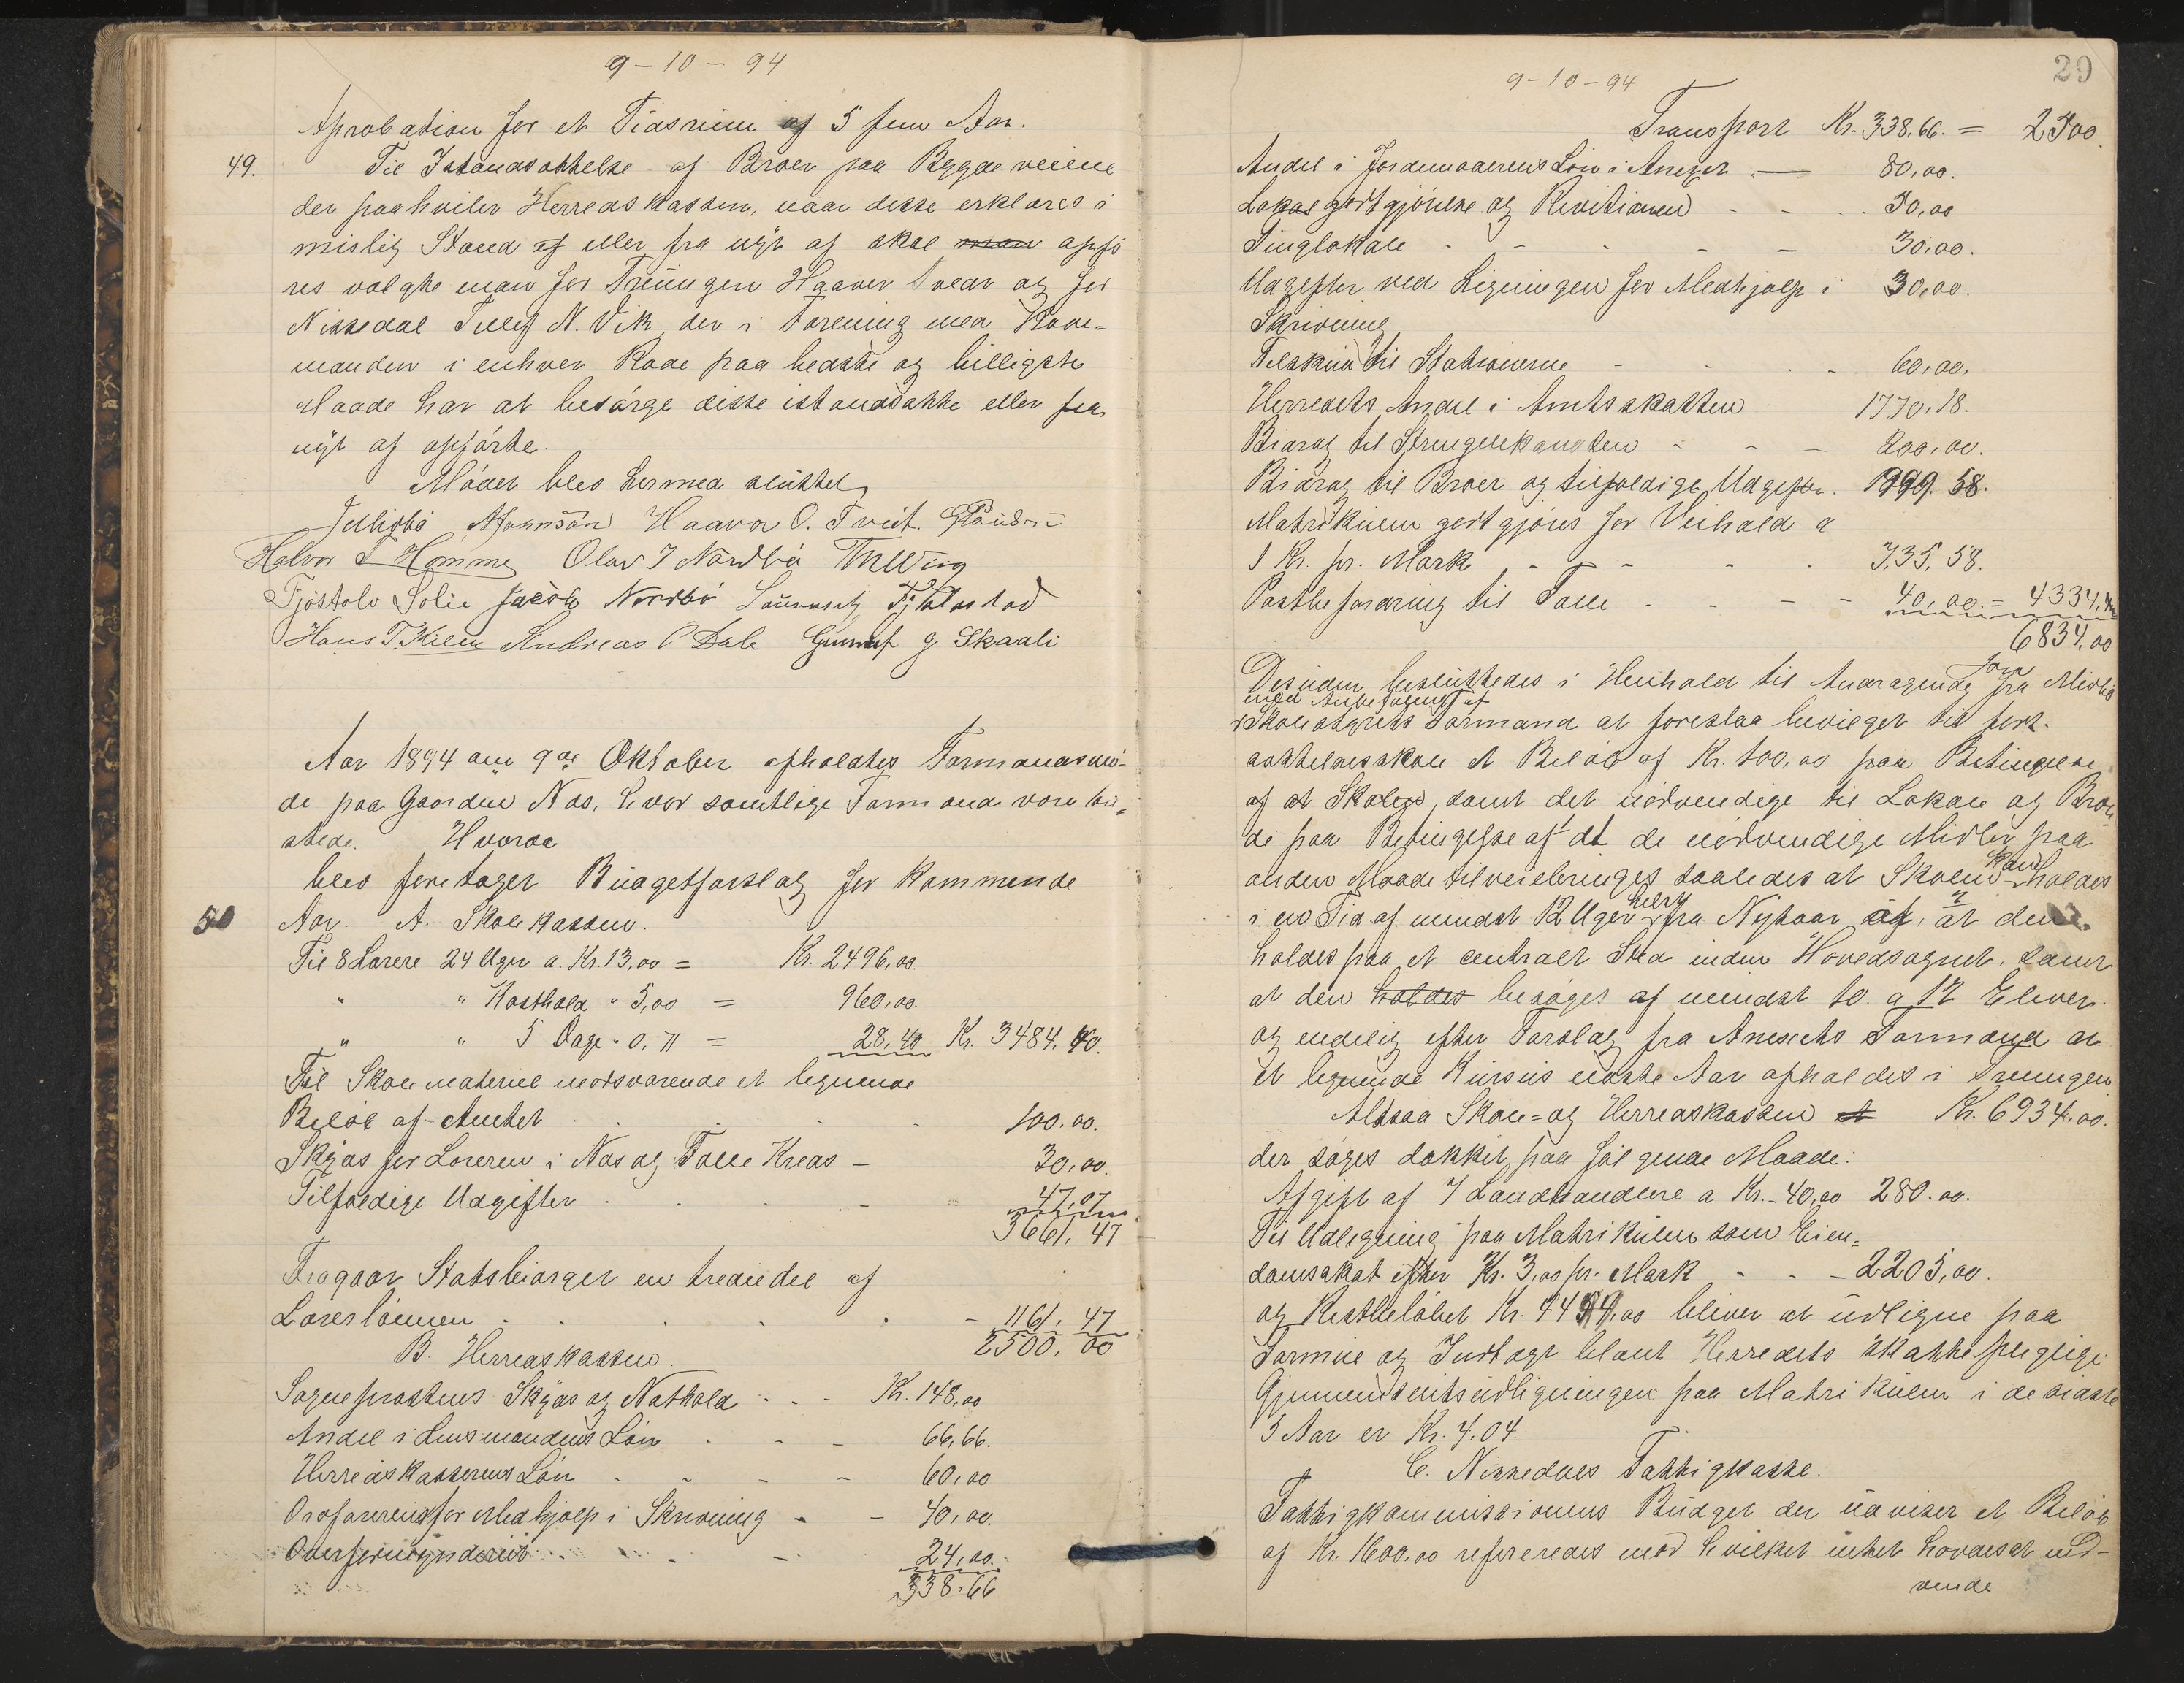 9-10-94
Aprobation for et Tidsrum af 5 fem Aar.
49. Til Istandsættelse af Broer paa Bygdeveiene
der paahviler Herredskassen, naar disse erklæres i
mislig Stand af eller fra nyt af skal man opfø
res valgte man for Treungen Haavor Tveit og for
Nissedal Tellef N. Vik, der i Forening med Rode=
manden i enhver Rode paa bedste og billigste
Maade har at besørge disse istandsatte eller fra
nyt af opførte.
Mødet blev hermed sluttet
Tellisbø AAanonsön Haavor O. Tveit.
Halvor T Homme Olav T Nordbø
Tjøstolv Solie Jacob Nordbö Tjslarstad
Hans T. Kilen Andreas O Dale Gunnuf G Skaali
Aar 1894 den 9de Oktober afholdtes Formandsmø-
de paa Gaarden Næs, hvor samtlige Formænd vare til=
stede. Hvorda
blev foretaget Budgetforslag for kommende
50 Aar. A. Skolekassen.
Til 8 Lærere 24 Uger a. Kr. 13,00 = Kr. 2496,00.
" " Kosthold " 5,00 = 960,00.
" " 5 Dage " 0,71 = 28,40 Kr. 3484.40.
Til Skolemateriel modsvarende et lignende
Beløb af Amtet 100.00.
Skyds for Læreren i Næs og Fone Kreds - 30,00.
Tilfældige Udgifter 47,07
3661,47
Fragaar Statsbidraget en trediedel af
Lærerlønnen - 1161,47
2500,00
B. Herredskassen.
Sogneprestens Skyds og Nathold - - Kr. 148,00
Andel i Lensmandens Løn - - 66,66.
Herredskassererens Løn - - 60,00
Ordføreren for Medhjælp i Skrivning - - 40,00.
Overformynderiet - 24,00.
338.66
29
9-10-94
Transport Kr. 338.66. = 2500.
Andel i Jordemoderens Løn i Anexet - 80,00.
Lokalgodtgjørelse og Revisionen - - 50,00
Tinglokale - - - - 30,00.
Udgifter ved Ligningen for Medhjælp i 30,00.
Skrivning
Tilskud til Stationerne - - 60,00.
Herredets Andel i Amtsskatten 1770,18.
Bidrag til Strengelekanten - - - 200,00.
Bidrag til Broer og tilfældige Udgifter. 1999.58.
Matrikulen godtgjøres for Veihold a
1 Kr. pr. Mark - - - - 735,58.
Postbefordring til Fone - - - - 40,00. = 4334,00
6834,00
Desuden besluttedes i Henhold til Andragende fra Midbø
med Anbefaling af
Skolestyrets Formand at foreslaa bevilget til fort-
sættelsesskole et Beløb af Kr. 100,00 paa Betingelse
af at Skolen, samt det nødvendige til Lokale og Bræn-
de paa Betingelse af at de nødvendige Midler paa
anden Maade tilveiebringes saaledes at Skolen kan holdes
i en Tid af mindst 12 Uger helst fra Nytaar af, at den
holdes paa et centralt Sted inden Hovedsognet, samt
at den holdes besøges af mindst 10. a 12 Elever.
og endelig efter Forslag fra Anexets Formænd at
et lignende Kursus næste Aar afholdes i Treungen
Altsaa Skole= og Herredskassen et Kr. 6934,00.
der søges dækket paa følgende Maade:
Afgift af 7 Landhandlere a Kr. 40,00 280.00.
Til Udligning paa Matrikulen som Eien=
domsskat efter Kr. 3,00 pr. Mark - - - 2205,00.
og Restbeløbet Kr. 4449,00 bliver at udligne paa
Formue og Indtægt blant Herredets skattepligtige
Gjennemsnitsudligningen paa Matrikulen i de sidste
5 Aar er Kr. 4.04.
C. Nissedals Fattigkasse.
Fattigkommissionens Budget der udviser et Beløb
af Kr. 1600.00 refereredes mod hvilket intet havdes at ind-
vende